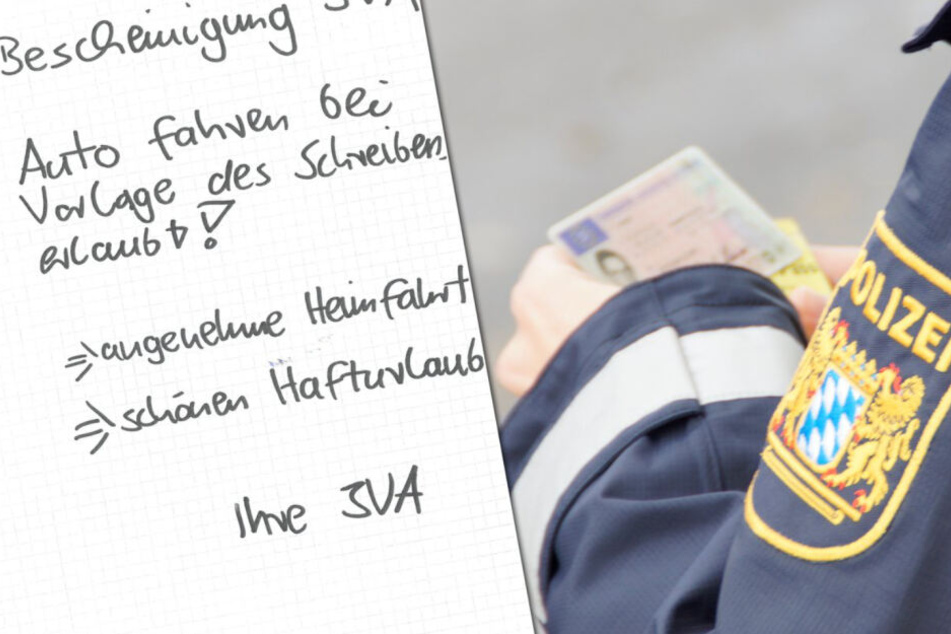 Bescheinigung JVA
Auto fahren bei
Vorlage des Schreiben
erlaubt!
=> angenehme Heimfahrt
=> schönen Hafturlaub
Ihre JVA
POLIZEI